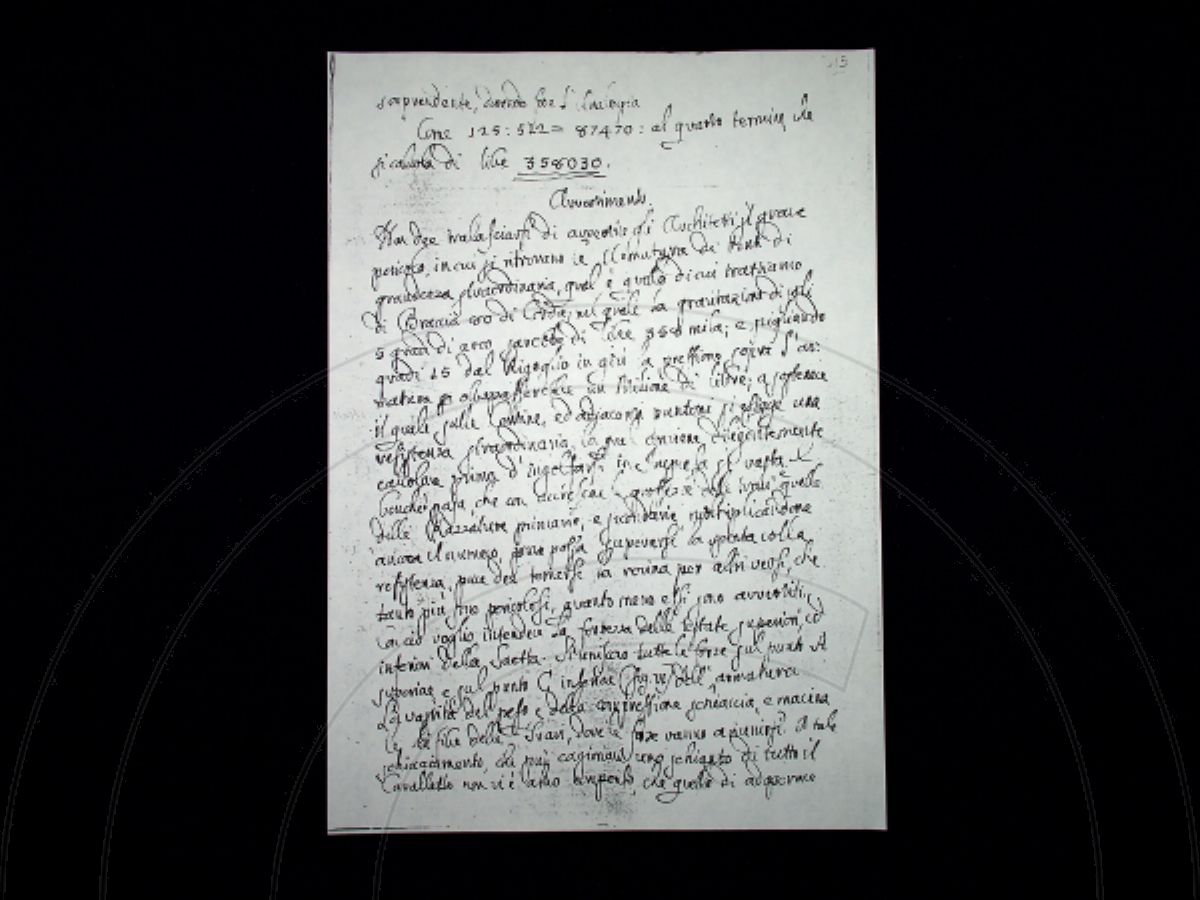 sorprendente, dicendo per l'Analogia
Come 125 : 512 = 87470 : al quarto termine che
si calcola di libre 358030.
Avvertimento.
Non dee tralasciarsi di avvertir gli Architetti il grave
pericolo, in cui si ritrovano le Armature de' Ponti di
grandezza straordinaria, qual è quella di cui trattiamo
di Braccia di Corda, nel quale la gravitazione di soli
5 gradi di arco sarebbe di libre 358 mila; e pigliando
gradi 15 dal Rigoglio in giù la pressione sopra l'ar-
matura oltrepasserebbe un Milione di libre; a sostenere
il quale sulle Colonne, ed adjacenti puntoni si esigge una
resistenza straordinaria, la qual conviene diligentemente
calcolare prima d'ingolfarsi in impresa sì vasta.
che con accrescere le grossezze delle travi, quelle
delle Razzature primarie, e secondarie moltiplicandone
ancora il numero, possa superarsi la spinta colla
resistenza, pure dee temersi la rovina per altri versi, che
tanto più sono pericolosi, quanto meno essi sono avvertiti.
Con ciò voglio intendere la fortezza delle testate superiori, ed
inferiori della Saetta. Si uniscono tutte le forze sul punto A
superiore e sul punto C inferiore (fig. VI) dell'armatura.
La vastità del peso e della compressione schiaccia, e macina
le fibre delle Travi, dove le forze vanno a punirsi. A tale
schiacciamento, che può cagionare uno schianto di tutto il
Cavalletto non vi è altro compenso, che quello di adoperare